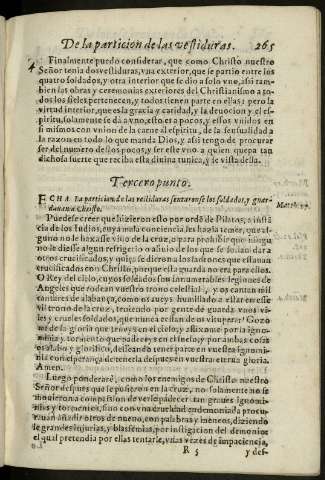 De la particion de las vestiduras. 265
4 Finalmente puedo considerar, que como Christo nuestro
Señor tenia dos vestiduras, vna exterior, que se partio entre los
quatro soldados, y otra interior que se dio a solo vno, assi tam
bien las obras y ceremonias exteriores del Christianismo a to-
dos los fieles pertenecen, y todos tienen parte en ellas: pero la
virtud interior, que es la gracia y caridad, y la deuocion y el es-
piritu, solamente se dà a vno, esto es a pocos, y essos vnidos en
si mismos con vnion de la carne al espiritu, de la sensualidad a
la razon en todo lo que manda Dios, y assi tengo de procurar
ser del numero de los pocos, y ser este vno a quien quepa tan
dichosa suerte que reciba esta diuina tunica, y se vista della.
Tercero punto.
ECHA la particion de las vestiduras sentaronse los soldados, y guar
dauan a Christo. Matth. 27.
Puedese creer que hizieron esto por ordẽ de Pilatos, a instã
cia de los Iudios, cuya mala conciencia les hazia temer, que al-
guno no le baxasse viuo de la cruz, o para prohibir que ningu
no le diesse algun refrigerio o aliuio de los que se solian dar a
otros crucificados, y quiçà se dieron a los ladrones que estauan
crucificados con Christo, porque esta guarda no era para ellos.
O Rey del cielo, cuyos soldados son innumerables legiones de
Angeles que rodean vuestro trono celestial, y os cantan mil
cantares de alabança, como os aueys humillado a estar en esse
vil trono de la cruz, teniendo por gente de guarda vnos vi-
les y crueles soldados, que nunca cessan de os vituperar? Gozo
me de la gloria que teneys en el cielo, y aflixome por la igno-
minia, y tormento que padeceys en el suelo, y por ambas cosas
os alabo y glorifico, desseando tener parte en vuestra ignomi-
nia con esperança de tenerla despues en vuestra eterna gloria.
Amen.
Luego ponderarè, como los enemigos de Christo nuestro
Señor despues que le pusieron en la cruz, no solamente no se
mouieron a compassion de verle padecer tan graues ignomi-
nias y tormentos, sino con vna crueldad endemoniada procu-
rauan añadir otros de nueuo, con palabras y meneos, diziendo
le grandes injurias, y blasfemias, por instigacion del demonio:
el qual pretendia por ellas tentarle, vnas vezes de impaciencia,
R 5 y des-